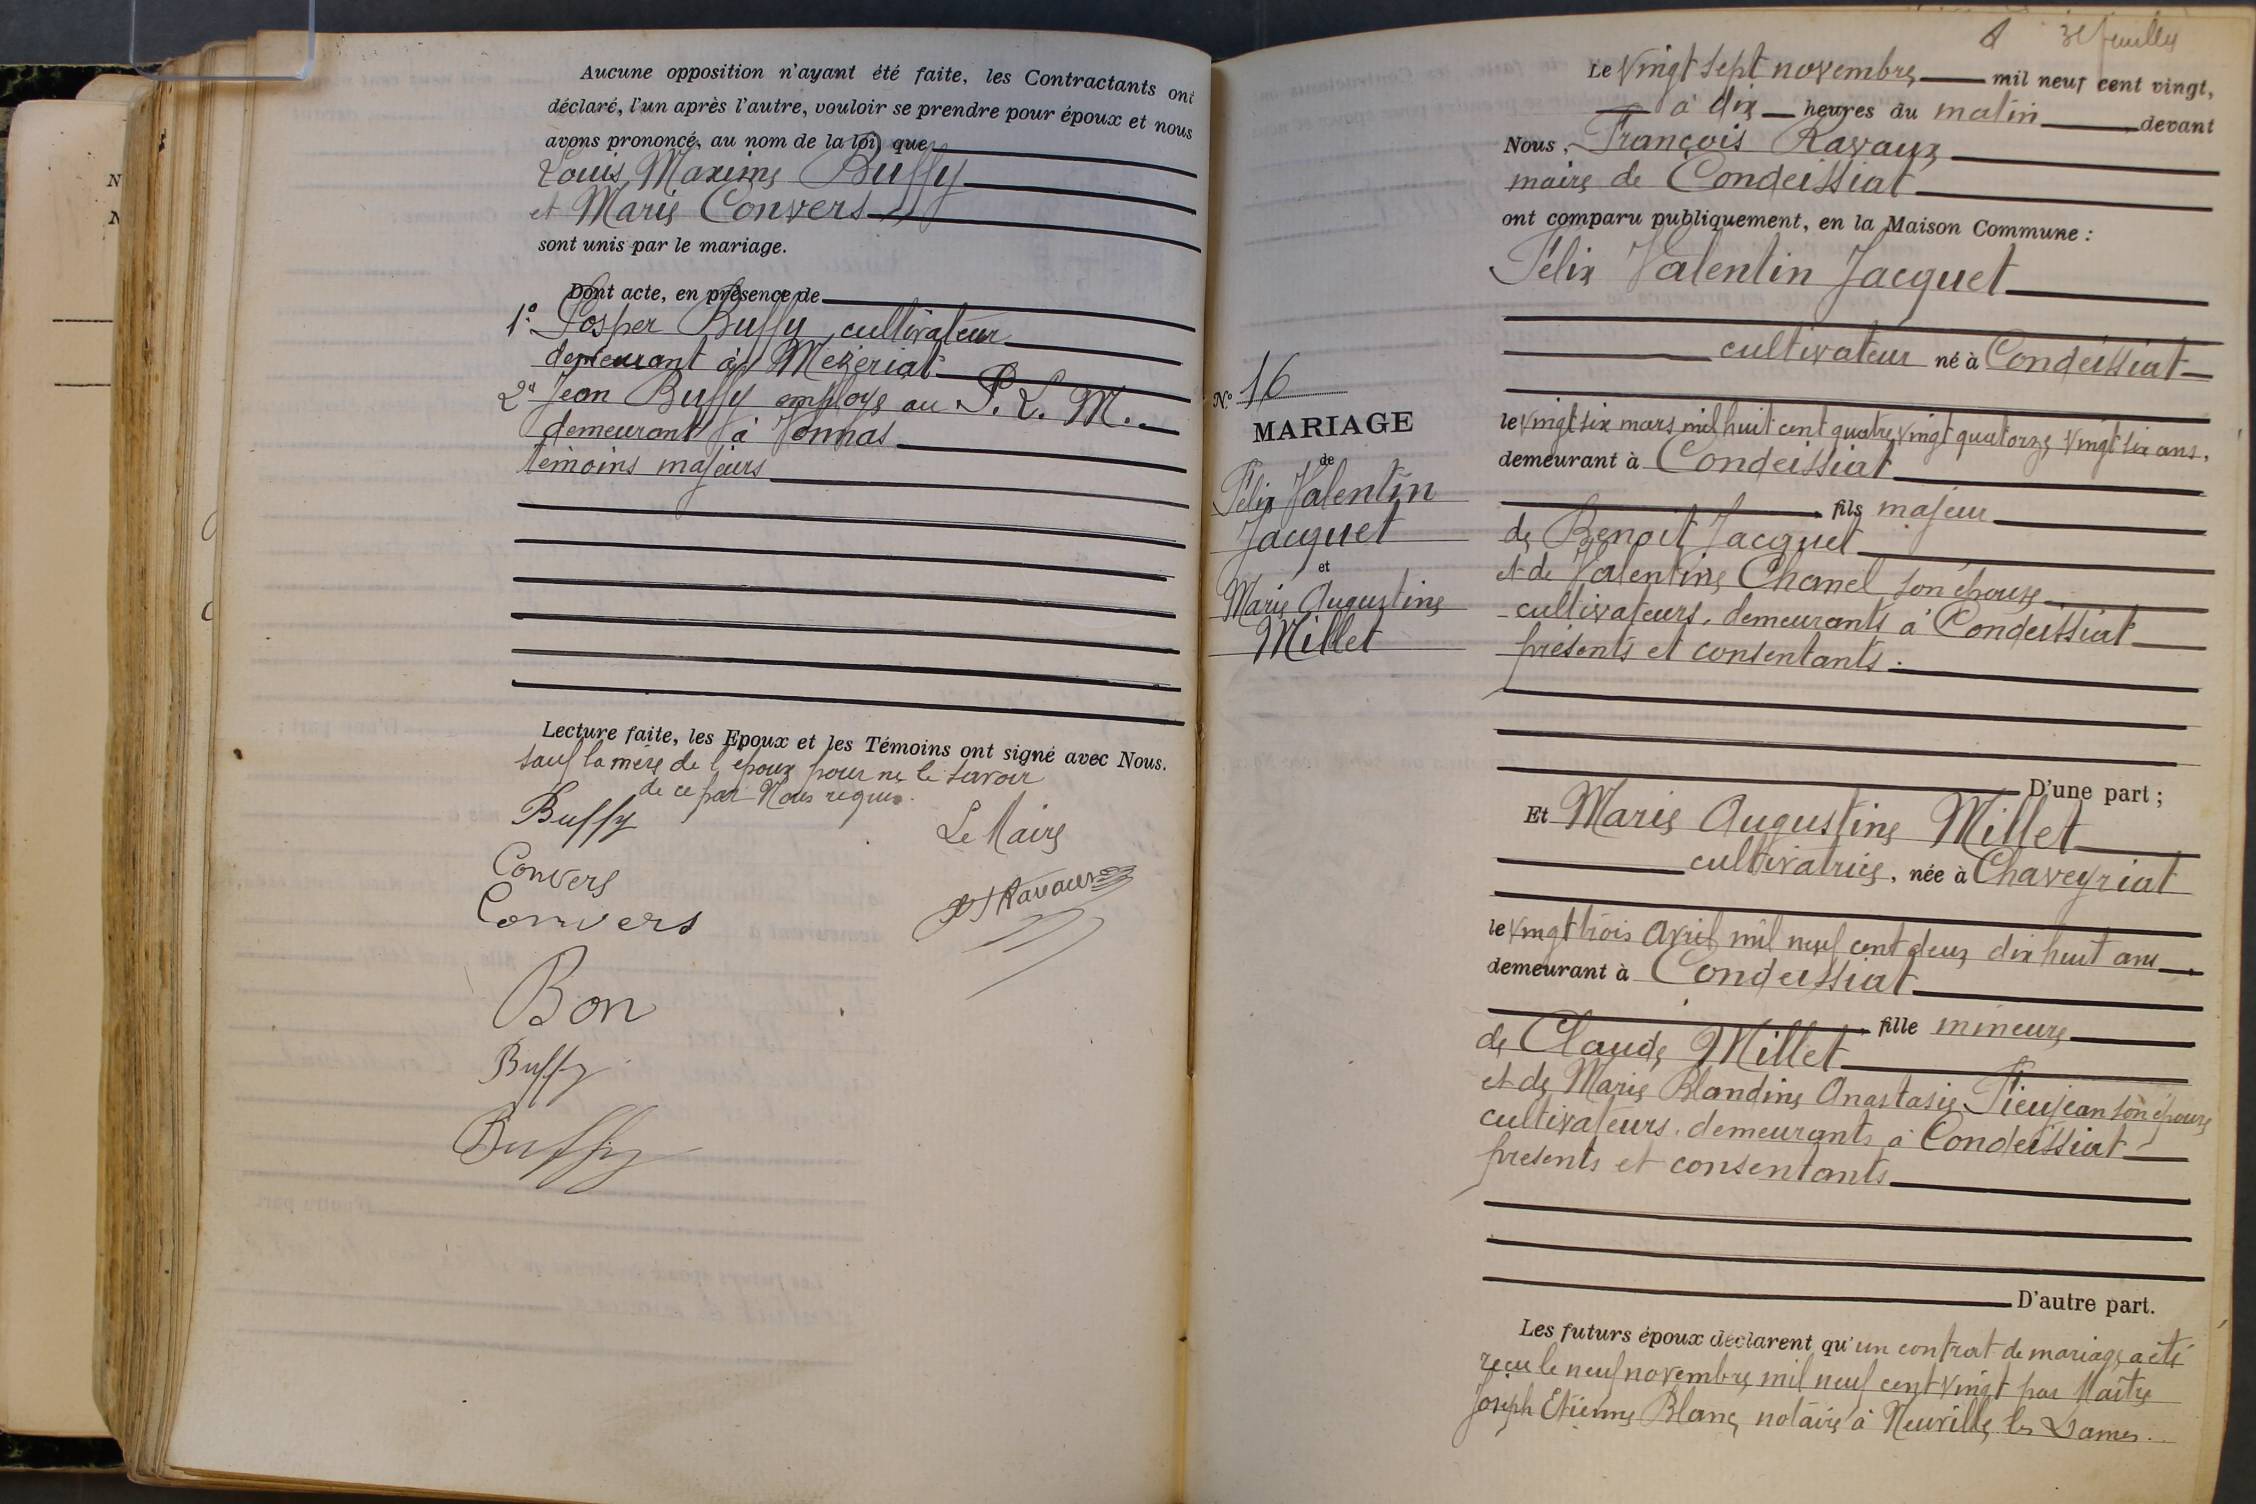 Aucune opposition n'ayant été faite, les Contractants ont
déclaré, l'un après l'autre, vouloir se prendre pour époux et nous
avons prononcé, au nom de la loi, que
Louis Maxime Buffy
et Marie Convers
sont unis par le mariage.
Dont acte, en présence de
1º Posper Buffy, cultivateur
demeurant à Mézériat
2º Jean Buffy employé au P. L. M.
demeurant à Vonnas
témoins majeurs
Lecture faite, les Epoux et les Témoins ont signé avec Nous.
sauf la mère de l'époux pour ne le savoir
de ce par Nous requis.
Buffy
Le Maire
Convers
Ravaux
Convers
Bon
Buffy
Buffy
3e feuillet
Le vingt sept novembre mil neuf cent vingt,
à dix heures du matin devant
Nous, François Ravaux
maire de Condeissiat
ont comparu publiquement, en la Maison Commune :
Félix Valentin Jacquet
cultivateur né à Condeissiat
le vingt six mars mil huit cent quatre vingt quatorze, vingt six ans,
demeurant à Condeissiat
fils majeur
de Benoit Jacquet
et de Valentine Chanel son épouse
cultivateurs, demeurants à Condeissiat
présents et consentants.
D'une part ;
Nº 16
MARIAGE
de
Félix Valentin
Jacquet
et
Marie Augustine
Millet
Et Marie Augustine Millet
cultivatrice, née à Chaveyriat
le vingt trois avril mil neuf cent deux dix huit ans
demeurant à Condeissiat
fille mineure
de Claude Millet
et de Marie Blandine Anastasie Pieujean son épouse
cultivateurs. demeurants à Condeissiat
présents et consentants
D'autre part.
Les futurs époux déclarent qu'un contrat de mariage a été
reçu le neuf novembre mil neuf cent vingt par Maître
Joseph Etienne Blanc, notaire à Neuville les Dames.